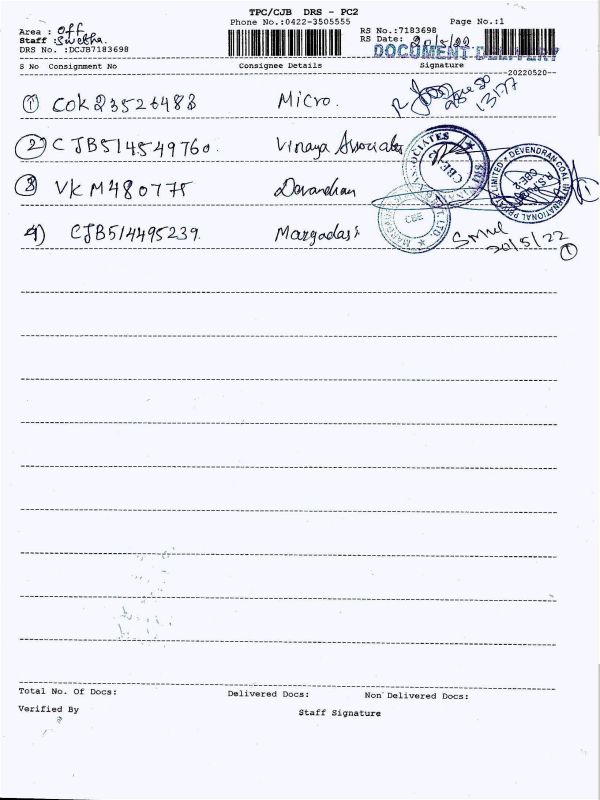 TPC/CJB DRS - PC2
Phone No.:0422-3505555
Page No.:1
Area : Off
Staff :Swetha.
DRS No. :DCJB7183698
RS No.:7183698
RS Date: 20/5/22
DOCUMENT DELIVERY
S No Consignment No Consignee Details Signature
20220520
1 COK23526483 Micro.
2) CJB514549760. Vinaya Associates
3 VKM480775 Devandran
4) CJB514495239. Margadasi
DEVENDRAN COAL INTERNATIONAL PRIVATE LIMITED
CBE-2
CBE
20/5/22
1
1
Total No. Of Docs: Delivered Docs: Non Delivered Docs:
Verified By Staff Signature